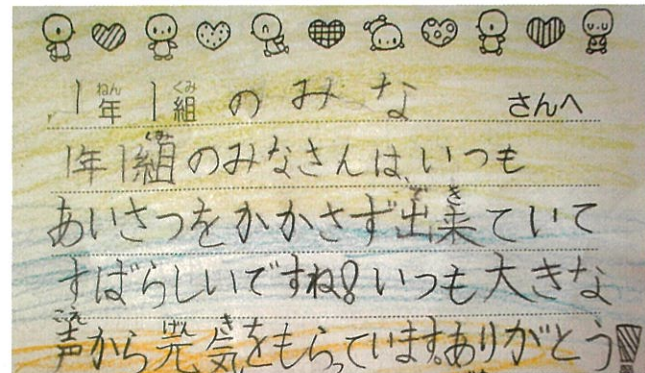 1年1組のみなさんへ
1年1組のみなさんは、いつも
あいさつをかかさず出来ていて
すばらしいですね!いつも大きな
声から元気をもらっています。ありがとう!